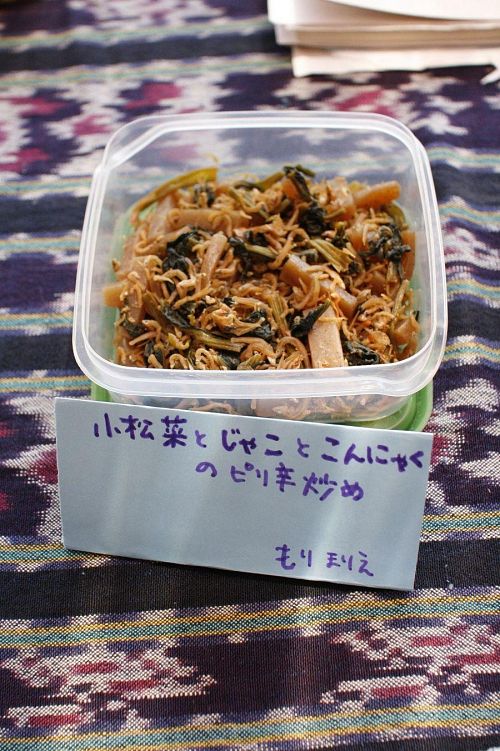 小松菜とじゃことこんにゃく
のピリ辛炒め
もりまりえ